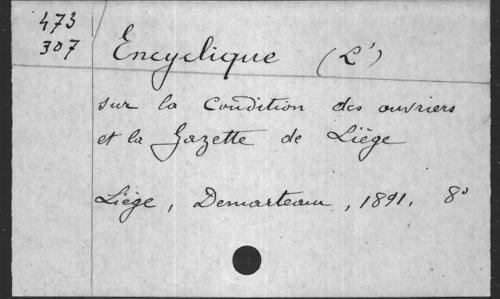 473
307
Encyclique (L')
sur la Condition des ouvriers
et la Gazette de Liège
Liège, Demarteau, 1891. 8º